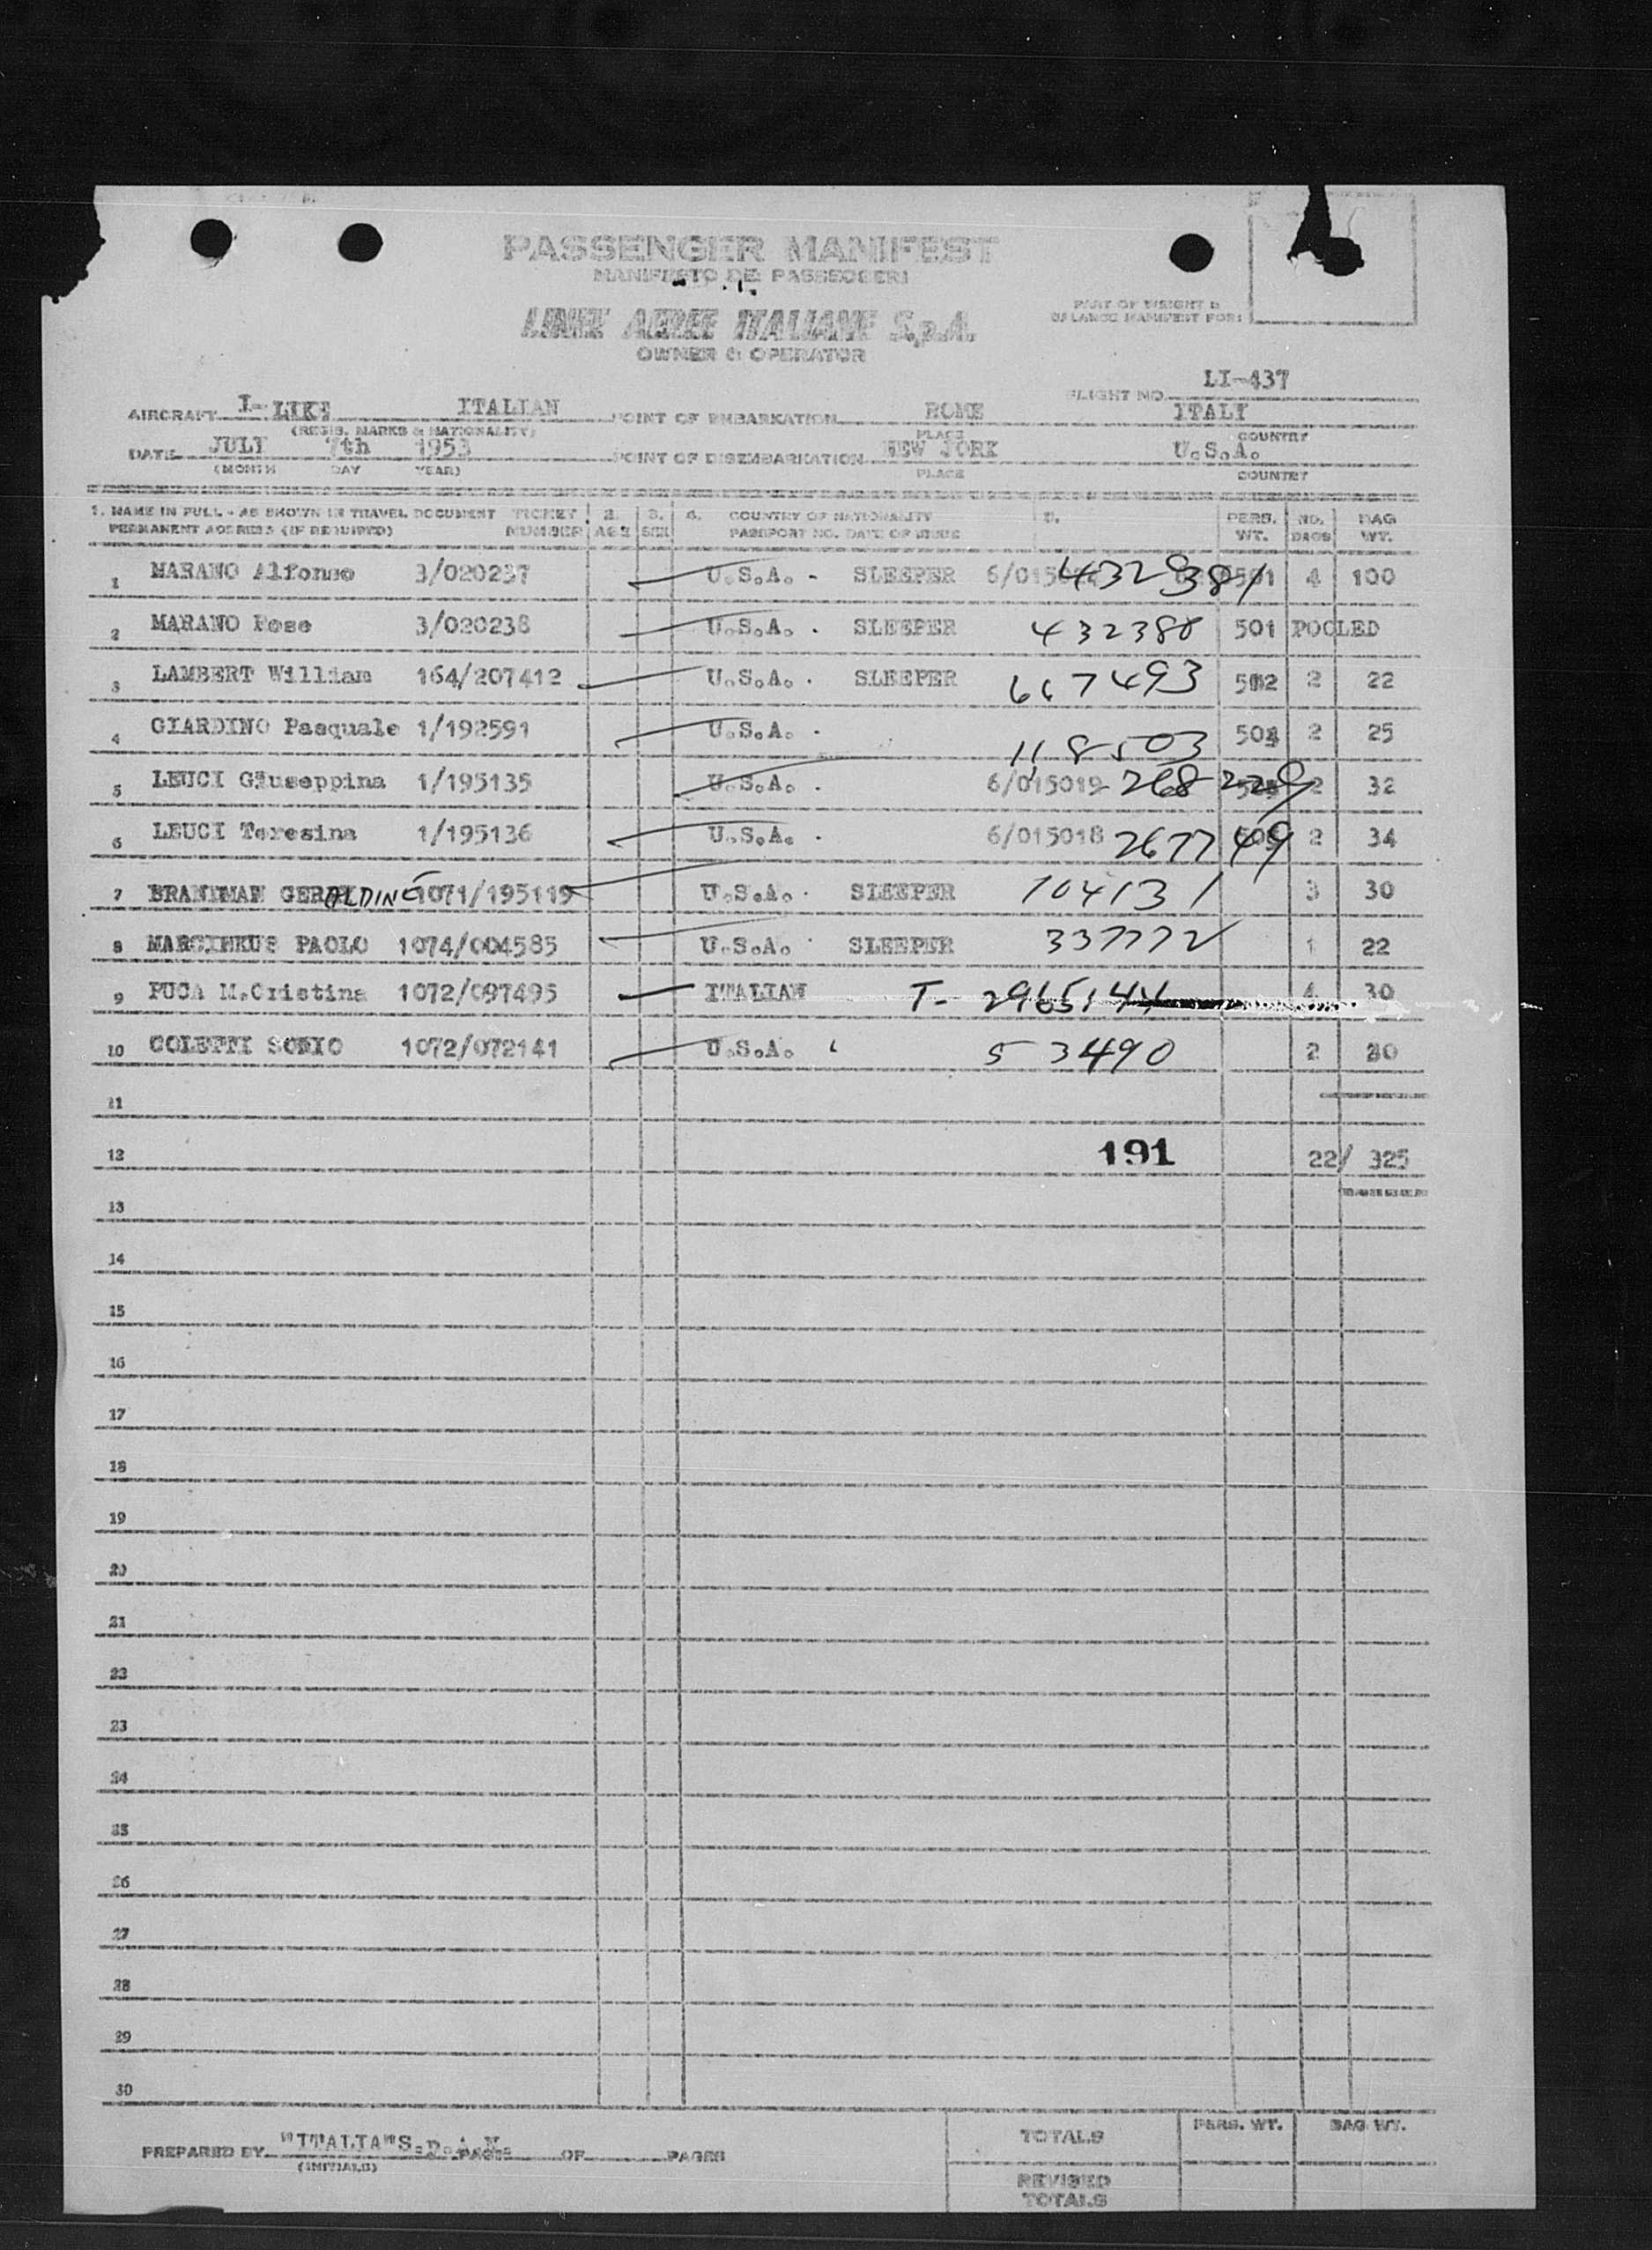 PASSENGER MANIFEST
MANIFESTO DEI PASSEGGERI
LINEE AEREE ITALIANE S.p.A.
OWNER & OPERATOR
PART OF WEIGHT &
BALANCE MANIFEST FOR:
FLIGHT NO. LI-437
AIRCRAFT I-LIKE ITALIAN POINT OF EMBARKATION ROME ITALY
(REGIS. MARKS & NATIONALITY) PLACE COUNTRY
DATE JULY 7th 1953 POINT OF DISEMBARKATION NEW YORK U.S.A.
(MONTH DAY YEAR) PLACE COUNTRY
1. NAME IN FULL - AS SHOWN IN TRAVEL DOCUMENT TICKET 2. 3. 4. COUNTRY OF NATIONALITY 5. PERS. NO. BAG
PERMANENT ADDRESS (IF REQUIRED) NUMBER AGE SEX PASSPORT NO. DATE OF ISSUE WT. BAGS WT.
1 MARANO Alfonso 3/020237 U.S.A. - SLEEPER 432381 501 4 100
2 MARANO Rose 3/020238 U.S.A. . SLEEPER 432380 501 POOLED
3 LAMBERT William 164/207412 U.S.A. . SLEEPER 667493 502 2 22
4 GIARDINO Pasquale 1/192591 U.S.A. . 118503 2 25
5 LEUCI Giuseppina 1/195135 U.S.A. . 6/015019 268229 2 32
6 LEUCI Teresina 1/195136 U.S.A. . 6/015018 267749 2 34
7 GERALDINE 1071/195119 U.S.A. . SLEEPER 104131 3 30
8 MARCINKUS PAOLO 1074/004585 U.S.A. . SLEEPER 337772 1 22
9 PUCA M.Cristina 1072/097495 ITALIAN T- 2965144 4 30
10 COLETTI SONIO 1072/072141 U.S.A. 53490 2 30
11
12 191 22/ 325
13
14
15
16
17
18
19
20
21
22
23
24
25
26
27
28
29
30
PREPARED BY "ITALIA"S.p.A.N. PAGE OF PAGES TOTALS PERS. WT. BAG WT.
(INITIALS) REVISED
TOTALS